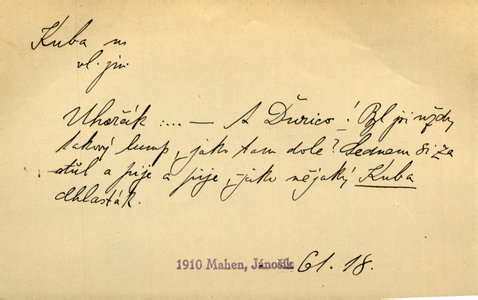 Kuba m
vl. jm.
Uhorčák ... — A Ďurico! Byl jsi vždy
takový lump, jako tam dole? Sednem si za
stůl a pije a pije, jako nějaký Kuba
chlasták.
1910 Mahen, Jánošík 61.18.